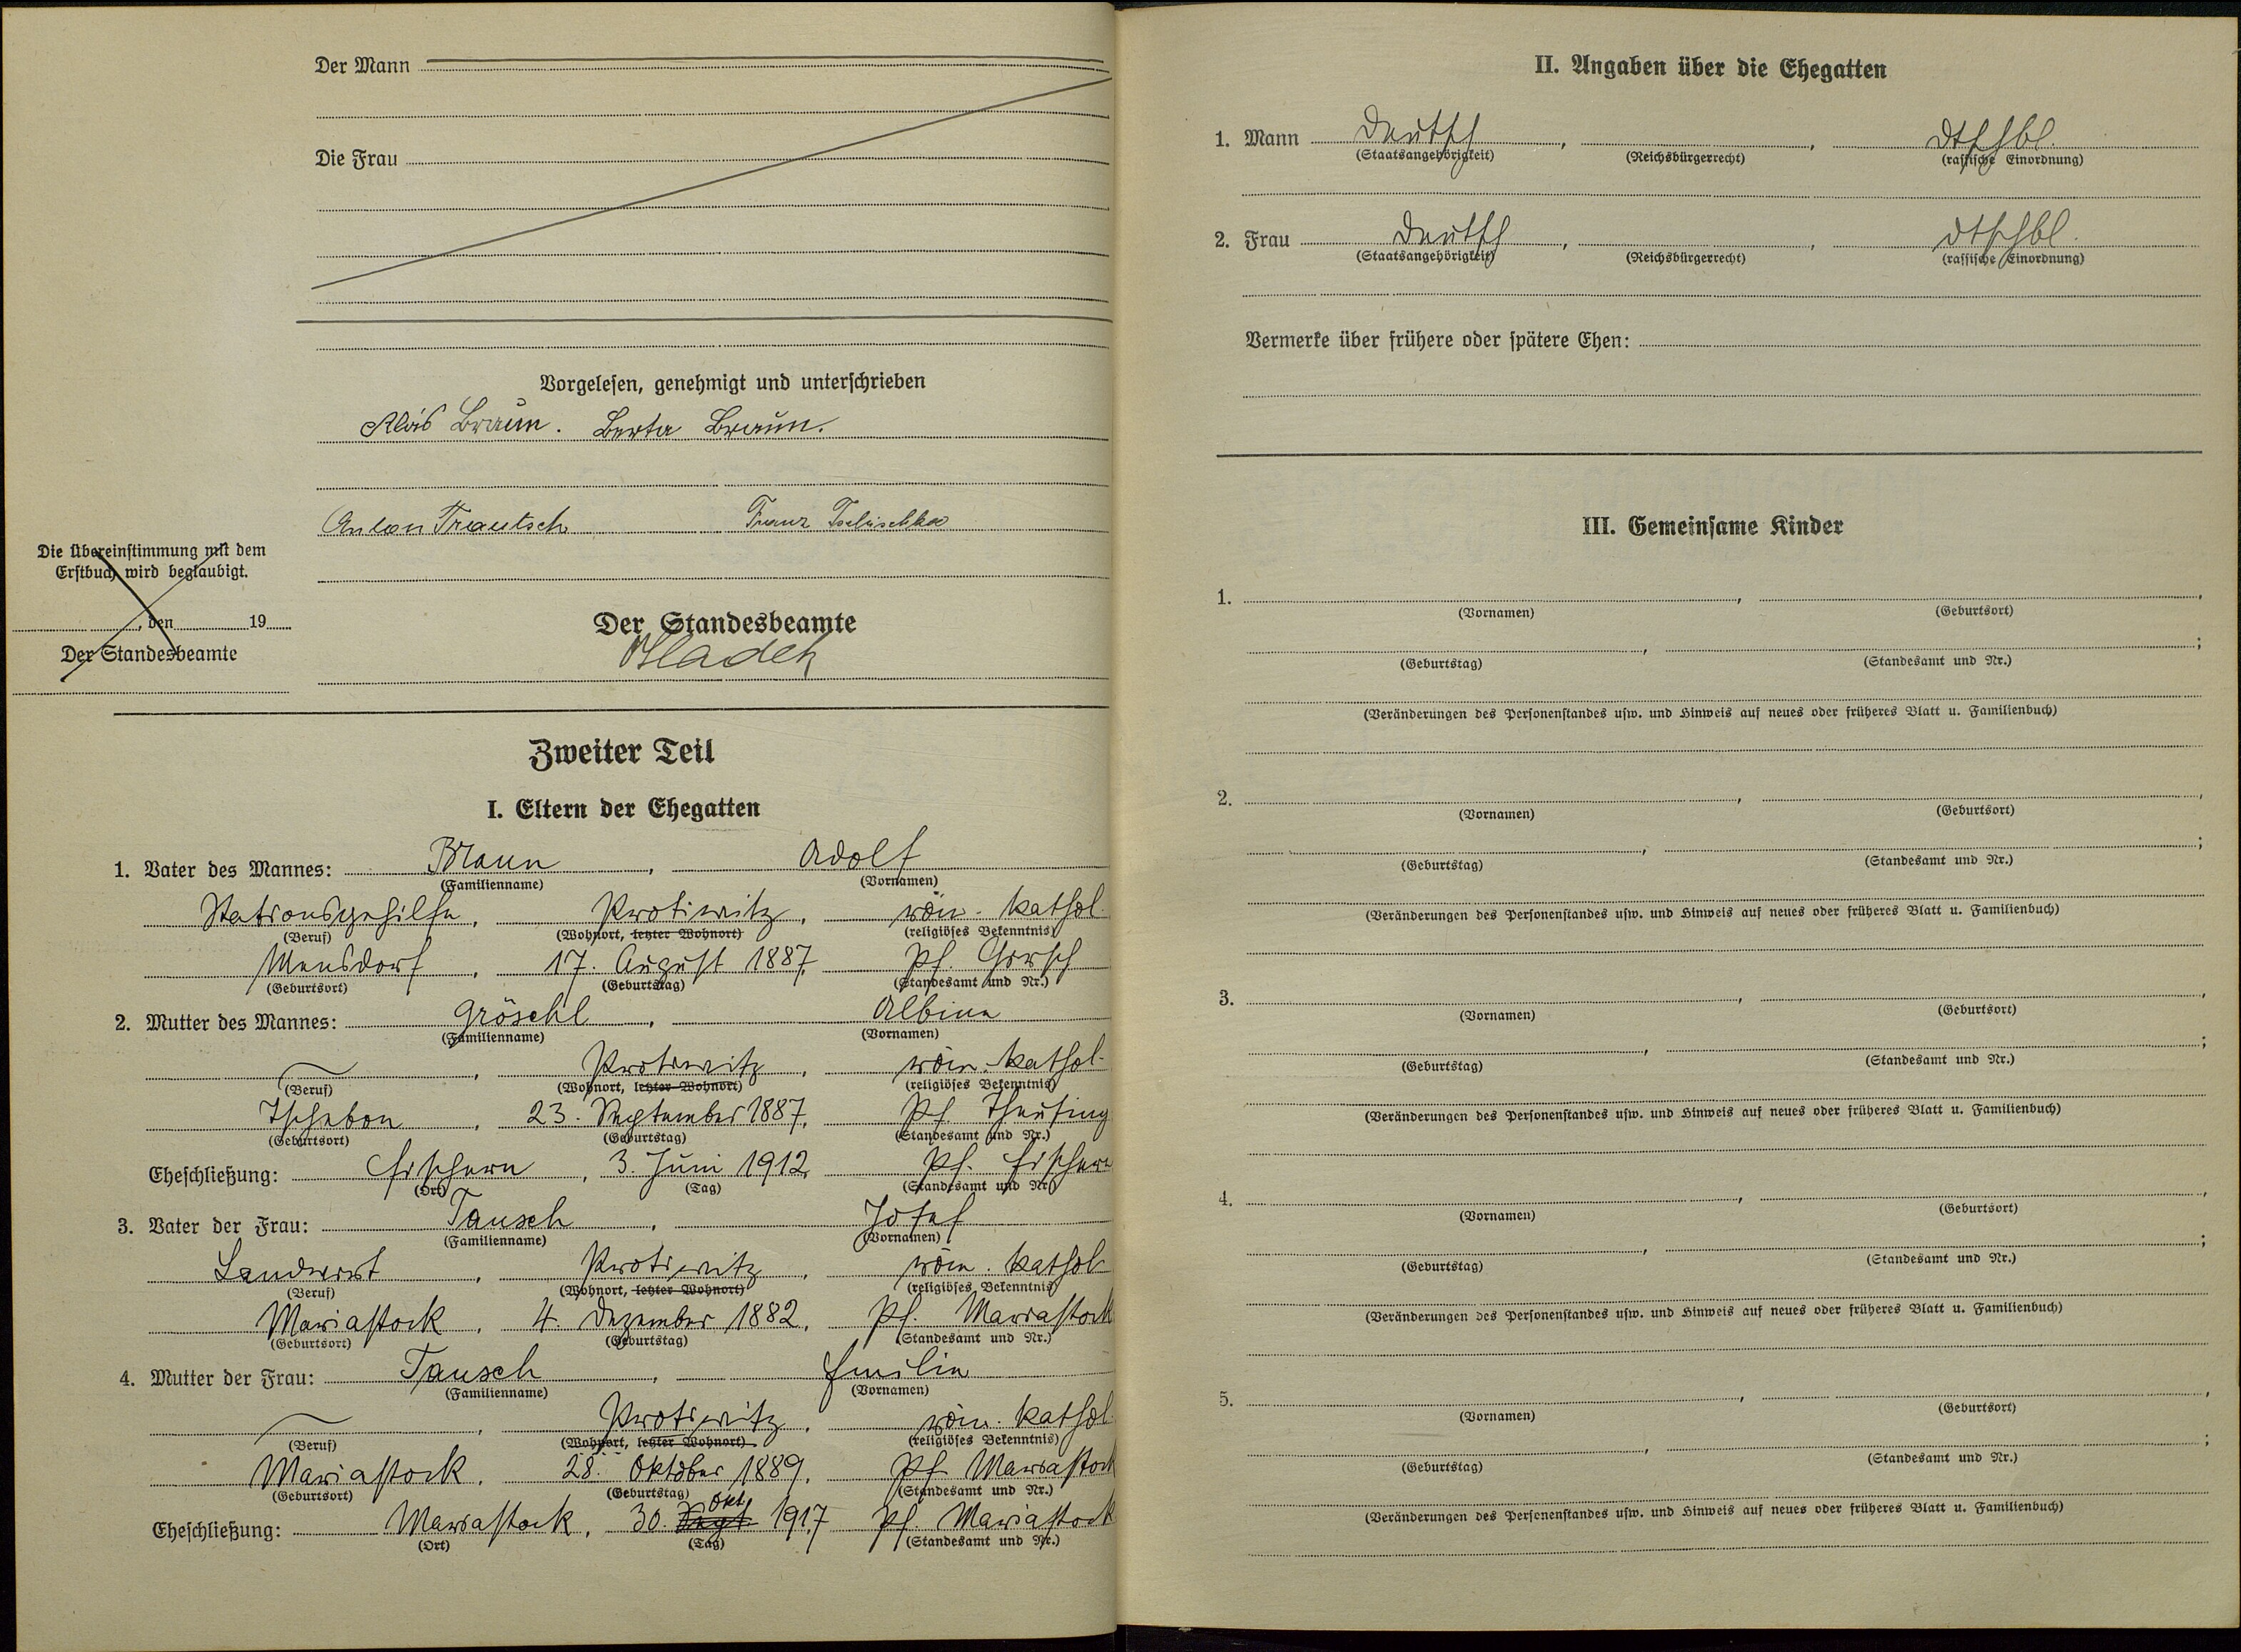 Der Mann
Die Frau
Vorgelesen, genehmigt und unterschrieben
Alois Braun. Berta Braun.
Anton Trautsch Franz Tschischka
Die Übereinstimmung mit dem
Erstbuch wird beglaubigt.
, den 19
Der Standesbeamte
Der Standesbeamte
Hladek
Zweiter Teil
I. Eltern der Ehegatten
1. Vater des Mannes: Braun, Adolf
(Familienname) (Vornamen)
Stationsgehilfe, Protiwitz, röm. kathol.
(Beruf) (Wohnort, letzter Wohnort) (religiöses Bekenntnis)
17. August 1887, Pf.
(Geburtsort) (Geburtstag) (Standesamt und Nr.)
2. Mutter des Mannes: Gröschl, Albine
(Familienname) (Vornamen)
, Protiwitz, röm. kathol.
(Beruf) (Wohnort, letzter Wohnort) (religiöses Bekenntnis)
Tschebon, 23. September 1887, Pf. Theusing
(Geburtsort) (Geburtstag) (Standesamt und Nr.)
Eheschließung: Fischern, 3. Juni 1912, Pf. Fischern
(Ort) (Tag) (Standesamt und Nr.)
3. Vater der Frau: Tausch, Josef
(Familienname) (Vornamen)
Landwirt, Protiwitz, röm. kathol.
(Beruf) (Wohnort, letzter Wohnort) (religiöses Bekenntnis)
Mariastock, 4. Dezember 1882, Pf. Mariastock
(Geburtsort) (Geburtstag) (Standesamt und Nr.)
4. Mutter der Frau: Tausch, Emilie
(Familienname) (Vornamen)
, Protiwitz, röm. kathol.
(Beruf) (Wohnort, letzter Wohnort) (religiöses Bekenntnis)
Mariastock, 28. Oktober 1889, Pf. Mariastock
(Geburtsort) (Geburtstag) (Standesamt und Nr.)
Okt.
Eheschließung: Mariastock, 30. Sept. 1917 Pf. Mariastock
(Ort) (Tag) (Standesamt und Nr.)
II. Angaben über die Ehegatten
1. Mann Deutsch, , dtschbl.
(Staatsangehörigkeit) (Reichsbürgerrecht) (rassische Einordnung)
2. Frau Deutsch, , dtschbl.
(Staatsangehörigkeit) (Reichsbürgerrecht) (rassische Einordnung)
Vermerke über frühere oder spätere Ehen:
III. Gemeinsame Kinder
1. , ,
(Vornamen) (Geburtsort)
, ;
(Geburtstag) (Standesamt und Nr.)
(Veränderungen des Personenstandes usw. und Hinweis auf neues oder früheres Blatt u. Familienbuch)
2. , ,
(Vornamen) (Geburtsort)
, ;
(Geburtstag) (Standesamt und Nr.)
(Veränderungen des Personenstandes usw. und Hinweis auf neues oder früheres Blatt u. Familienbuch)
3. , ,
(Vornamen) (Geburtsort)
, ;
(Geburtstag) (Standesamt und Nr.)
(Veränderungen des Personenstandes usw. und Hinweis auf neues oder früheres Blatt u. Familienbuch)
4. , ,
(Vornamen) (Geburtsort)
, ;
(Geburtstag) (Standesamt und Nr.)
(Veränderungen des Personenstandes usw. und Hinweis auf neues oder früheres Blatt u. Familienbuch)
5. , ,
(Vornamen) (Geburtsort)
, ;
(Geburtstag) (Standesamt und Nr.)
(Veränderungen des Personenstandes usw. und Hinweis auf neues oder früheres Blatt u. Familienbuch)